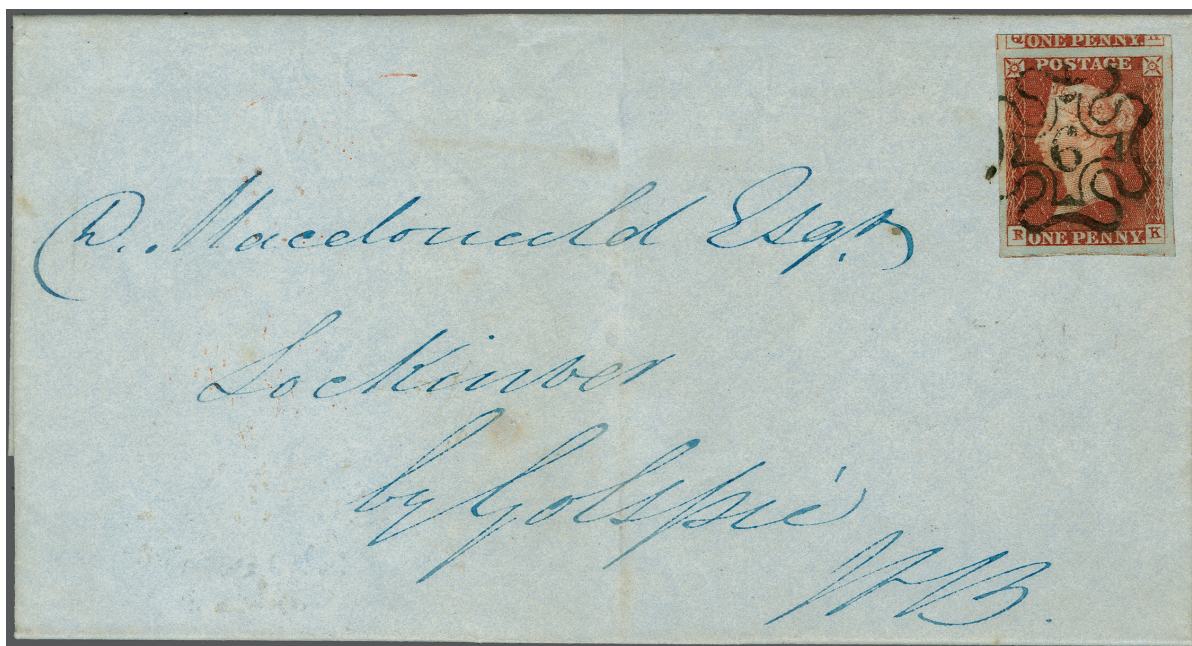 Q ONE PENNY. K
POSTAGE
6
R ONE PENNY. K
D. Macdonald Esqr.
Lockinver
by Golspie
N.B.